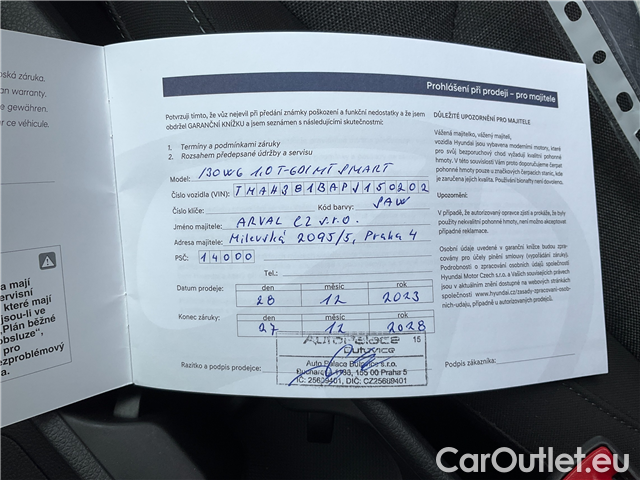 Prohlášení při prodeji – pro majitele
ská záruka.
n warranty.
e gewähren.
r ce véhicule.
mají
ervisní
které mají
jsou-li ve
„Plán běžné
obsluze“,
pro
bezproblémový
a.
Potvrzuji tímto, že vůz nejevil při předání známky poškození a funkční nedostatky a že jsem
obdržel GARANČNÍ KNÍŽKU a jsem seznámen s následujícími skutečnostmi:
1. Termíny a podmínkami záruky
2. Rozsahem předepsané údržby a servisu
Model: i30 WG 1.0 T-GDI MT SMART
Číslo vozidla (VIN): TMAH381BAPJ150202
Číslo klíče: Kód barvy: SAW
Jméno majitele: ARVAL CZ s.r.o.
Adresa majitele: Milevská 2095/5, Praha 4
PSČ: 14000
Tel.:
Datum prodeje: den měsíc rok
28 12 2023
Konec záruky: den měsíc rok
27 12 2028
AutoPalace
Butovice
15
Auto Palace Butovice s.r.o.
Bucharova 1, 155 00 Praha 5
IČ: 25689401, DIČ: CZ25689401
Razítko a podpis prodejce:
Podpis zákazníka:
DŮLEŽITÉ UPOZORNĚNÍ PRO MAJITELE
Vážená majitelko, vážený majiteli,
vozidla Hyundai jsou vybavena moderními motory, které
pro svůj bezporuchový chod vyžadují kvalitní pohonné
hmoty. V této souvislosti Vám proto doporučujeme čerpat
pohonné hmoty pouze u značkových čerpacích stanic, kde
je zaručena jejich kvalita. Používání bionafty není dovoleno.
Upozornění:
V případě, že autorizovaný opravce zjistí a prokáže, že byly
použity nekvalitní pohonné hmoty, není možno akceptovat
případné reklamace.
Osobní údaje uvedené v garanční knížce budou zpra-
covány pro účely plnění smlouvy (vypořádání záruky).
Podrobnosti o zpracování osobních údajů společností
Hyundai Motor Czech s.r.o. a Vašich souvisejících právech
jsou v aktuálním znění dostupné na webových stránkách
společnosti www.hyundai.cz/zasady-zpracovani-osob-
nich-udaju, případně u autorizovaných prodejců.
CarOutlet.eu